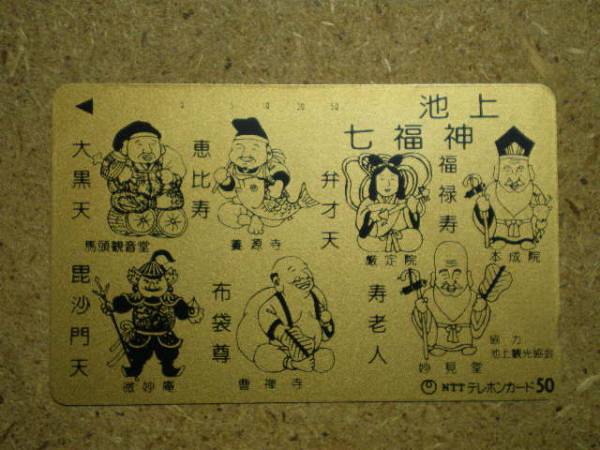 0 5 10 20 50
池上
七福神
大黒天
馬頭観音堂
恵比寿
養源寺
弁才天
厳定院
福禄寿
本成院
毘沙門天
微妙庵
布袋尊
曹禅寺
寿老人
妙見堂
協力
池上観光協会
NTT テレホンカード 50